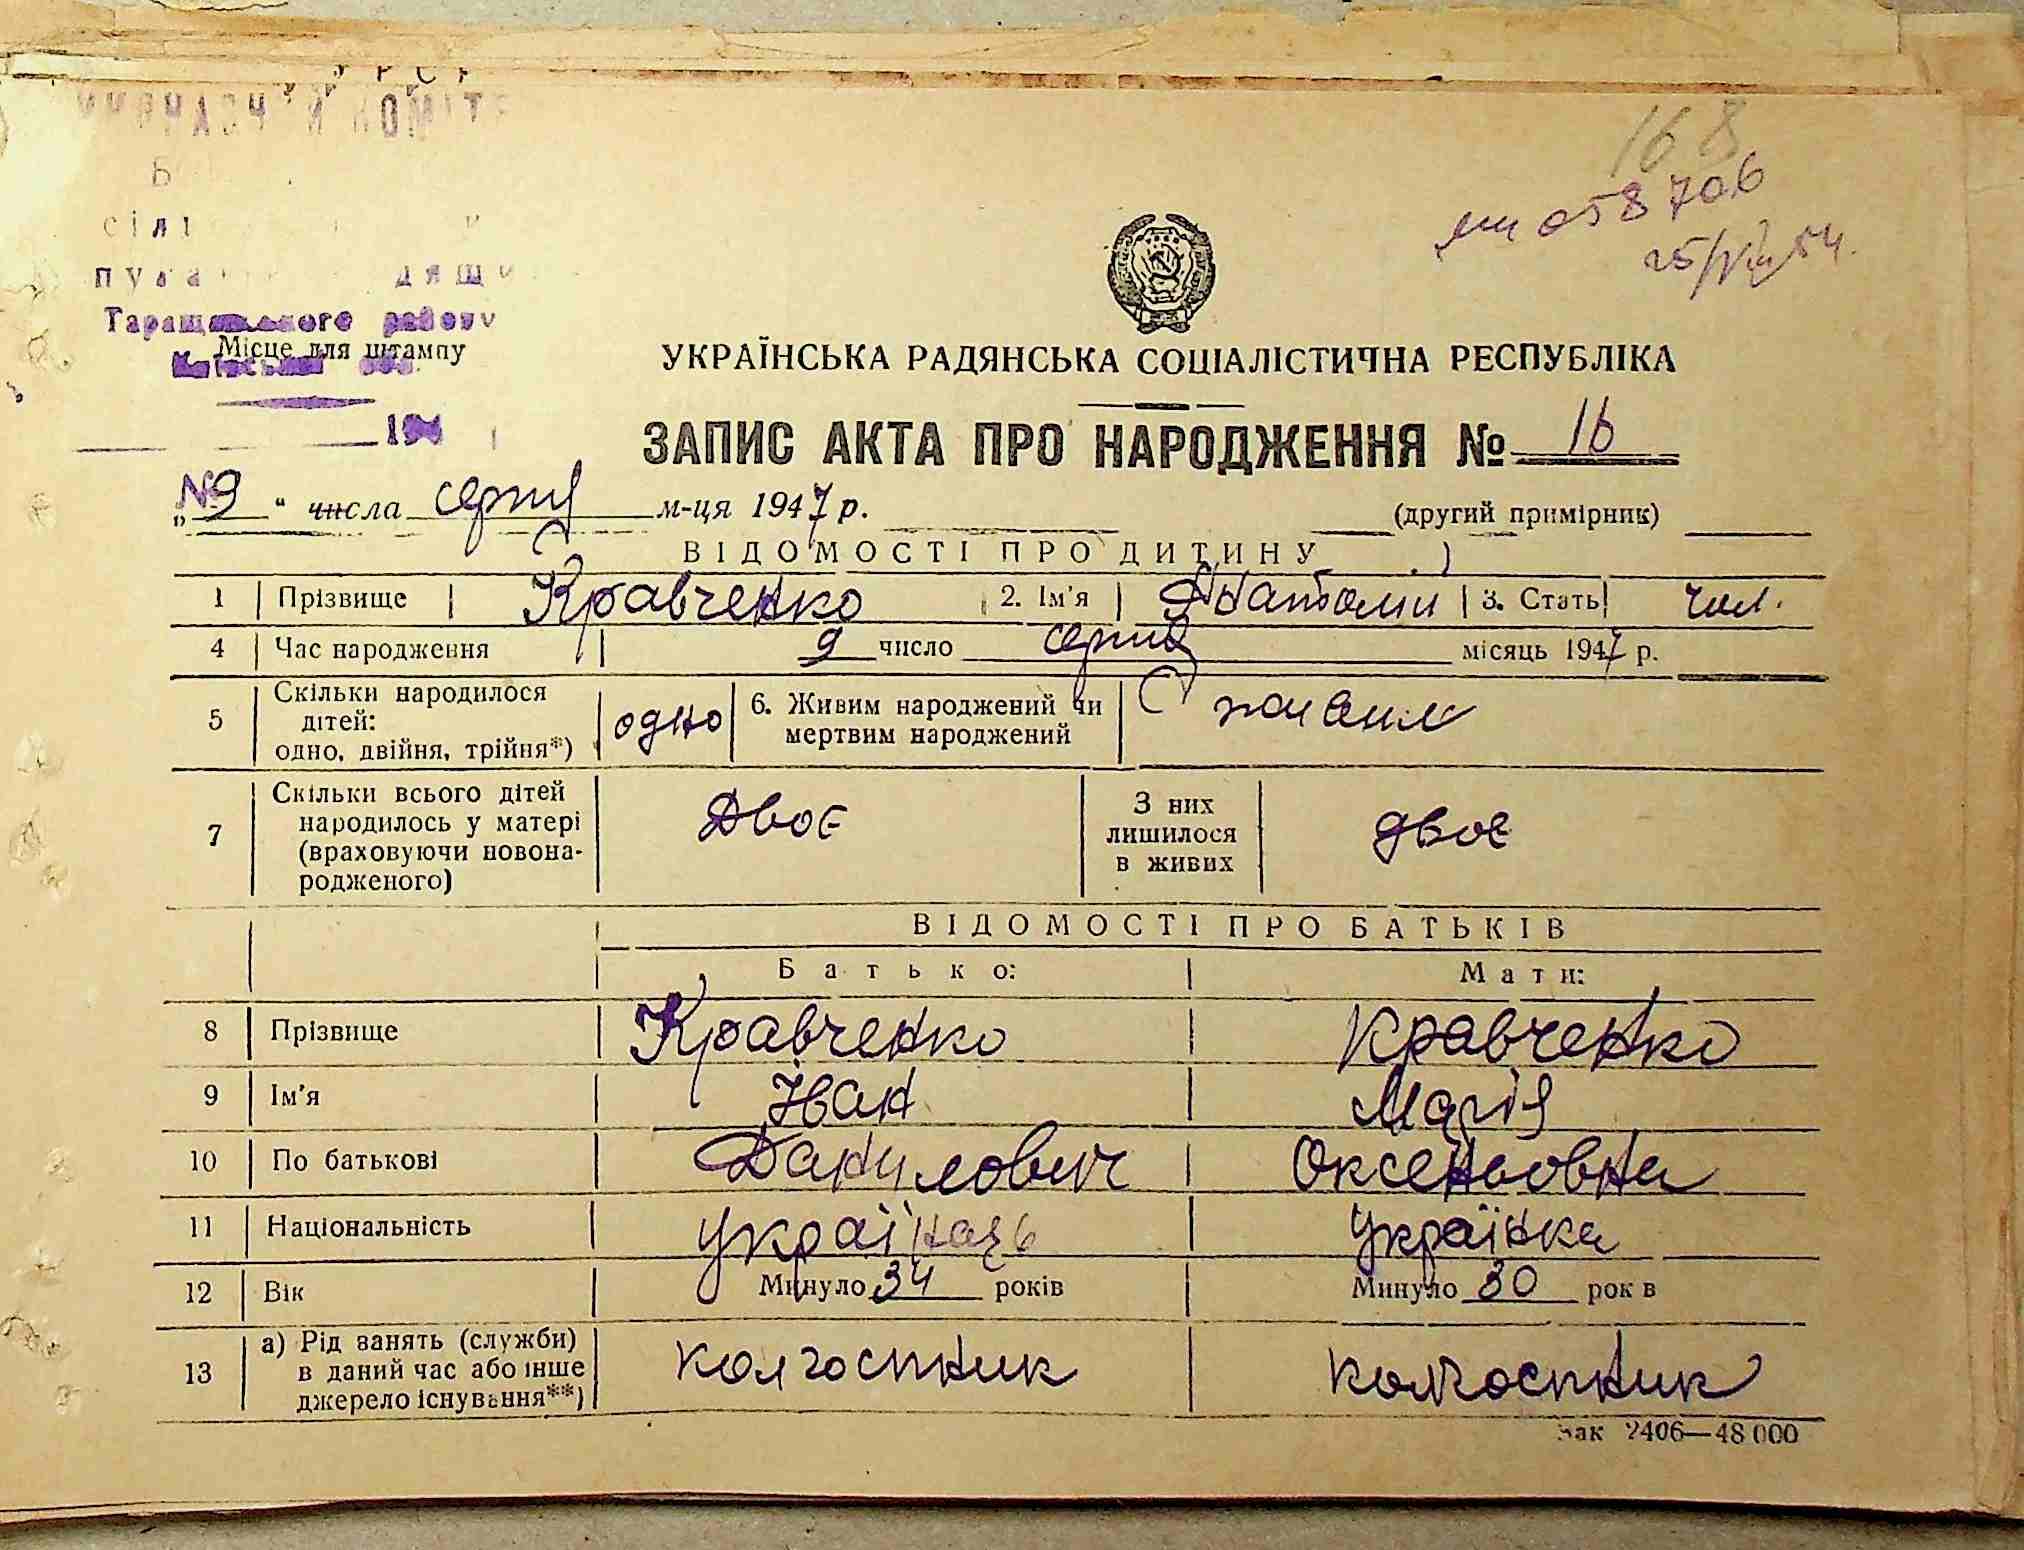 168
058706
Таращанського району
Місце для штампу
Київської обл.
194
УКРАЇНСЬКА РАДЯНСЬКА СОЦІАЛІСТИЧНА РЕСПУБЛІКА
ЗАПИС АКТА ПРО НАРОДЖЕННЯ № 16
„ 9 “ числа серпня м-ця 1947 р.
(другий примірник)
ВІДОМОСТІ ПРО ДИТИНУ
1 Прізвище Кравченко 2. Ім'я Анатолій 3. Стать чол.
4 Час народження 9 число серпня місяць 1947 р.
5 Скільки народилося дітей: одно, двійня, трійня*) одно 6. Живим народжений чи мертвим народжений живим
7 Скільки всього дітей народилось у матері (враховуючи новонародженого) Двоє З них лишилося в живих двоє
ВІДОМОСТІ ПРО БАТЬКІВ
Батько: Мати:
8 Прізвище Кравченко Кравченко
9 Ім'я Іван Марія
10 По батькові Данилович Оксеньовна
11 Національність українець Українка
12 Вік Минуло 34 років Минуло 30 рок в
13 а) Рід занять (служби) в даний час або інше джерело існування**) колгоспник колгоспник
Зак 2406—48 000